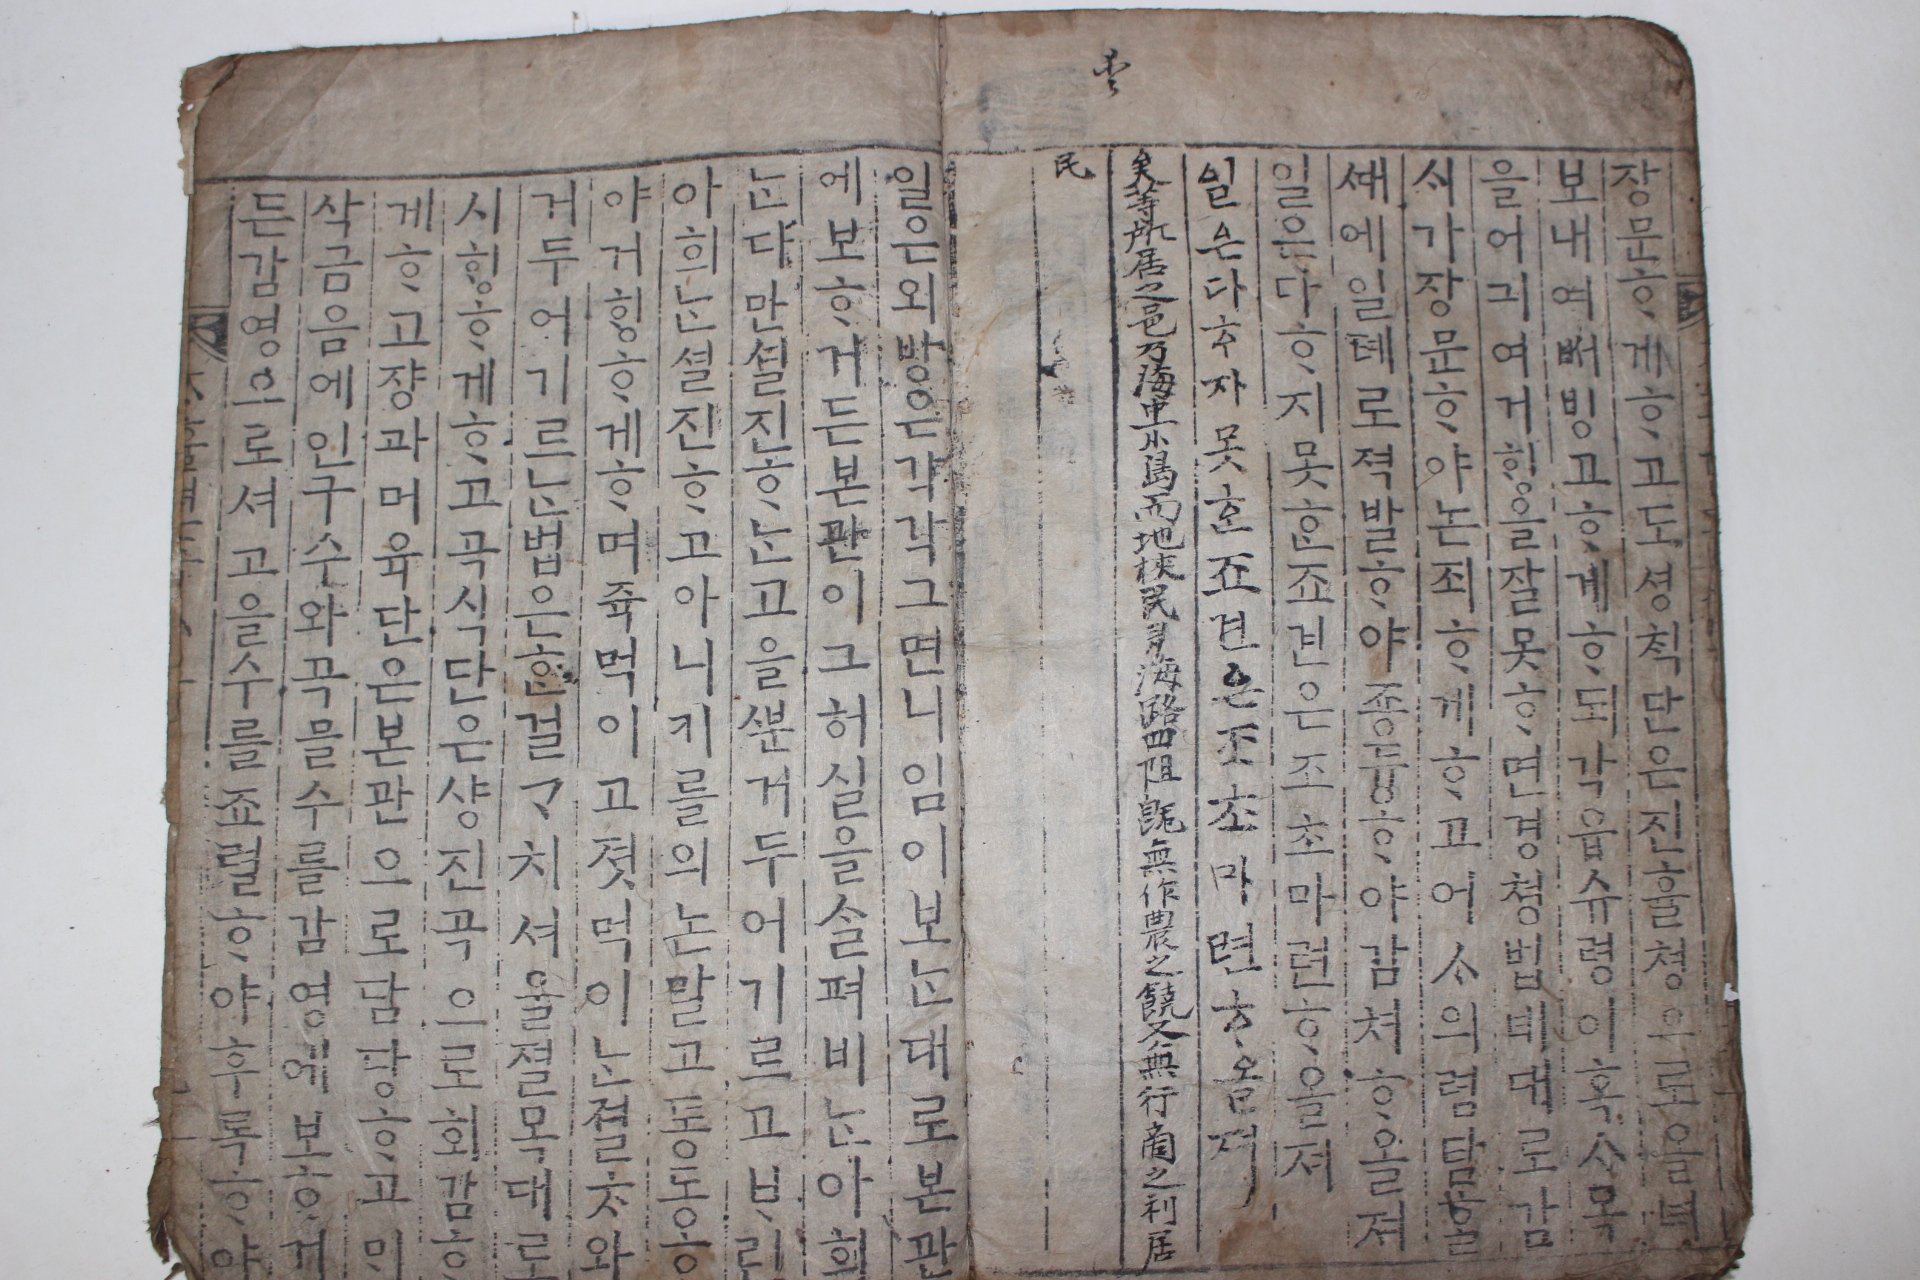 장문ᄒᆞ게ᄒᆞ고도셩칙단은진휼쳥으로올녀
보내여ᄡᅥ빙고ᄒᆞ게ᄒᆞ되각읍슈령이혹ᄉᆞ목
을어긔여거ᄒᆡᆼ을잘못ᄒᆞ면경쳥법녜대로감
ᄉᆡ가장문ᄒᆞ야논죄ᄒᆞ게ᄒᆞ고어ᄉᆞ의렴탐ᄒᆞᆯ
ᄯᅢ에일톄로젹발ᄒᆞ야죵듕ᄒᆞ야감쳐ᄒᆞ올져
일은다ᄒᆞ지못ᄒᆞᆫ죠건은조초마련ᄒᆞ올져
일은다ᄒᆞ자못ᄒᆞᆫ죠건은조초마련ᄒᆞ옴져
矣等所居之邑乃海中小島而地狹民多海路四阻旣無作農之饒又無行商之利居
民
일은외방은각각그면니임이보ᄂᆞᆫ대로본관
에보ᄒᆞ거든본관이그허실을ᄉᆞᆯ펴비ᄂᆞᆫ아희
ᄂᆞᆫ다만셜진ᄒᆞᄂᆞᆫ고을ᄲᅮᆫ거두어기르고ᄇᆞ린
아희ᄂᆞᆫ셜진ᄒᆞ고아니키를의논말고통동ᄒᆞ
야거ᄒᆡᆼᄒᆞ게ᄒᆞ며쥭먹이고졋먹이ᄂᆞᆫ졀ᄎᆞ와
거두어기르ᄂᆞᆫ법은ᄒᆞᆫ걸ᄀᆞ치셔울졀목대로
시ᄒᆡᆼᄒᆞ게ᄒᆞ고곡식단은샹진곡으로회감ᄒᆞ
게ᄒᆞ고쟝과머육단은본관으로담당ᄒᆞ고ᄆᆡ
삭금음에인구수와곡믈수를감영에보ᄒᆞ게
든감영으로셔고을수를죠렬ᄒᆞ야후록ᄒᆞ야